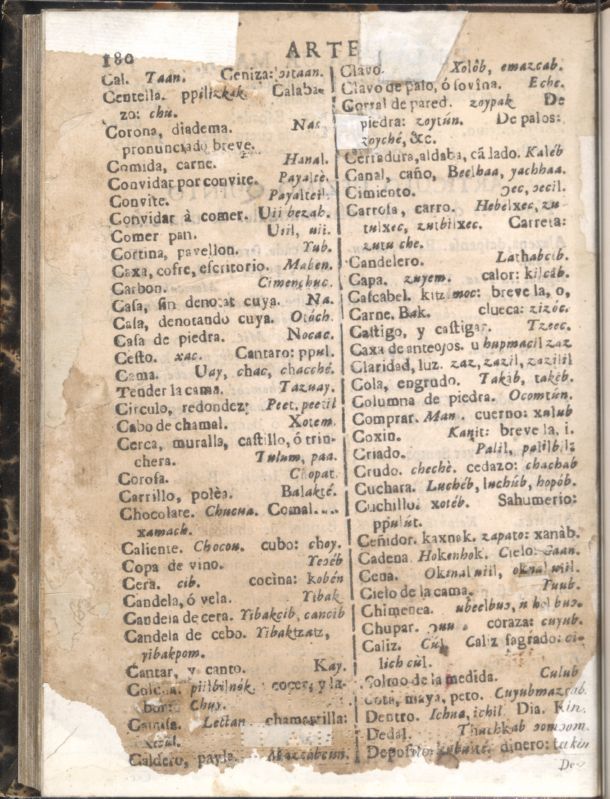 180
ARTE
Cal. Taan. Ceniza: ɔitaan.
Centella. ppilizkak. Calaba-
zo: chu.
Corona, diadema. Nac
pronunciado breve.
Comida, carne. Hanal.
Convidar por convite. Payaltè.
Convite. Payalteil
Convidar à comer. Uii bezab.
Comer pan. Util, uii.
Cortina, pavellon. Yub.
Caxa, cofre, escritorio. Maben.
Carbon. Cimenchuc.
Casa, sin denotar cuya. Na.
Casa, denotando cuya. Otòch.
Casa de piedra. Nocac.
Cesto. xac. Cantaro: ppul.
Cama. Uay, chac, chacché.
Tender la cama. Tazuay.
Circulo, redondez: Peet, peetil
Cabo de chamal. Xotem.
Cerca, muralla, castillo, ó trin-
chera. Tulum, paa.
Corosa. Copat.
Carrillo, polèa. Balakté.
Chocolate. Chucua. Comal...
xamach.
Caliente. Chocou. cubo: choy.
Copa de vino.
Cera. cib. cocina: kobén
Candela, ó vela. Tibak
Candela de cera. Yibakcib, cancib
Candela de cebo. Yibaktzatz,
yibakpom.
Cantar, y canto. Kay.
piilbilnok. cocer, y la-
Chuy.
Camisa. chamarrilla:
Caldero, payla.
Clavo. Xolôb, emazcab.
Clavo de palo, ó sovina. Eche.
Corral de pared. zoypak De
piedra: zoytún. De palos:
zoyché, &c.
Cerradura, aldaba, cãlado. Kaléb
Canal, caño, Beelhaa, yachhaa.
Cimiento. ɔec, ɔecil.
Carrosa, carro. Hebelxec, zu
tulxec, zutbilxec. Carreta:
zutu che.
Candelero. Lathabcib.
Capa. zuyem. calor: kilcàb.
Cascabel. kitzmoc: breve la, o,
Carne. Bak. clueca: zizóc.
Castigo, y castigar. Tzeec.
Caxa de anteojos. u hupmacil zaz
Claridad, luz. zaz, zazil, zazilil
Cola, engrudo. Takàb, takèb.
Columna de piedra. Ocomtún.
Comprar. Man. cuerno: xulub
Coxin. Kanit: breve la, i.
Criado. Palil, palilbil:
Crudo. chechè. cedazo: chachab
Cuchara. Luchéb, luchúb, hopób.
Cuchillo: xotéb. Sahumerio:
ppulút.
Ceñidor. kaxnok. zapato: xanàb.
Cadena. Hokenhok. Cielo: Caan.
Cena. Oknaluiil,
Cielo de la cama. Yuub.
Chimenea. ubeelbuɔ, u hol buɔ.
Chupar. ɔuu. coraza: cuyub.
Caliz. Cùl. Caliz sagrado: ci-
lich cùl.
Colmo de la medida. Culub
Cota, maya, peto. Cuyubmazcab.
Dentro. Ichua, ichil. Dia. Kin.
Dedal. Thuchkab
Deposito: dinero: takin
De-